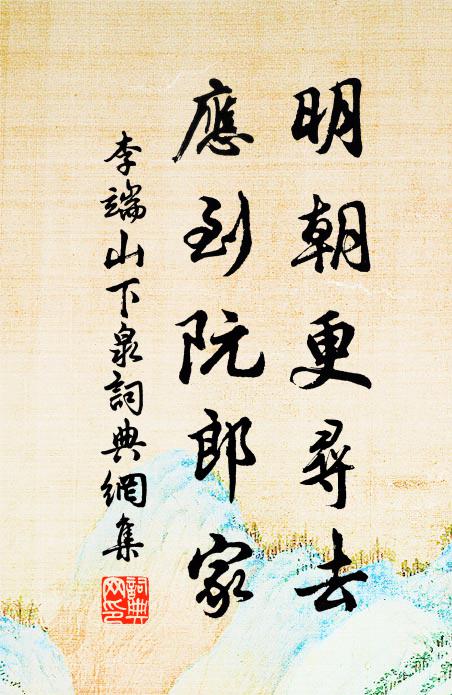 明朝更尋去
應到阮郎家
李端山下泉詞典網集
詞典网印